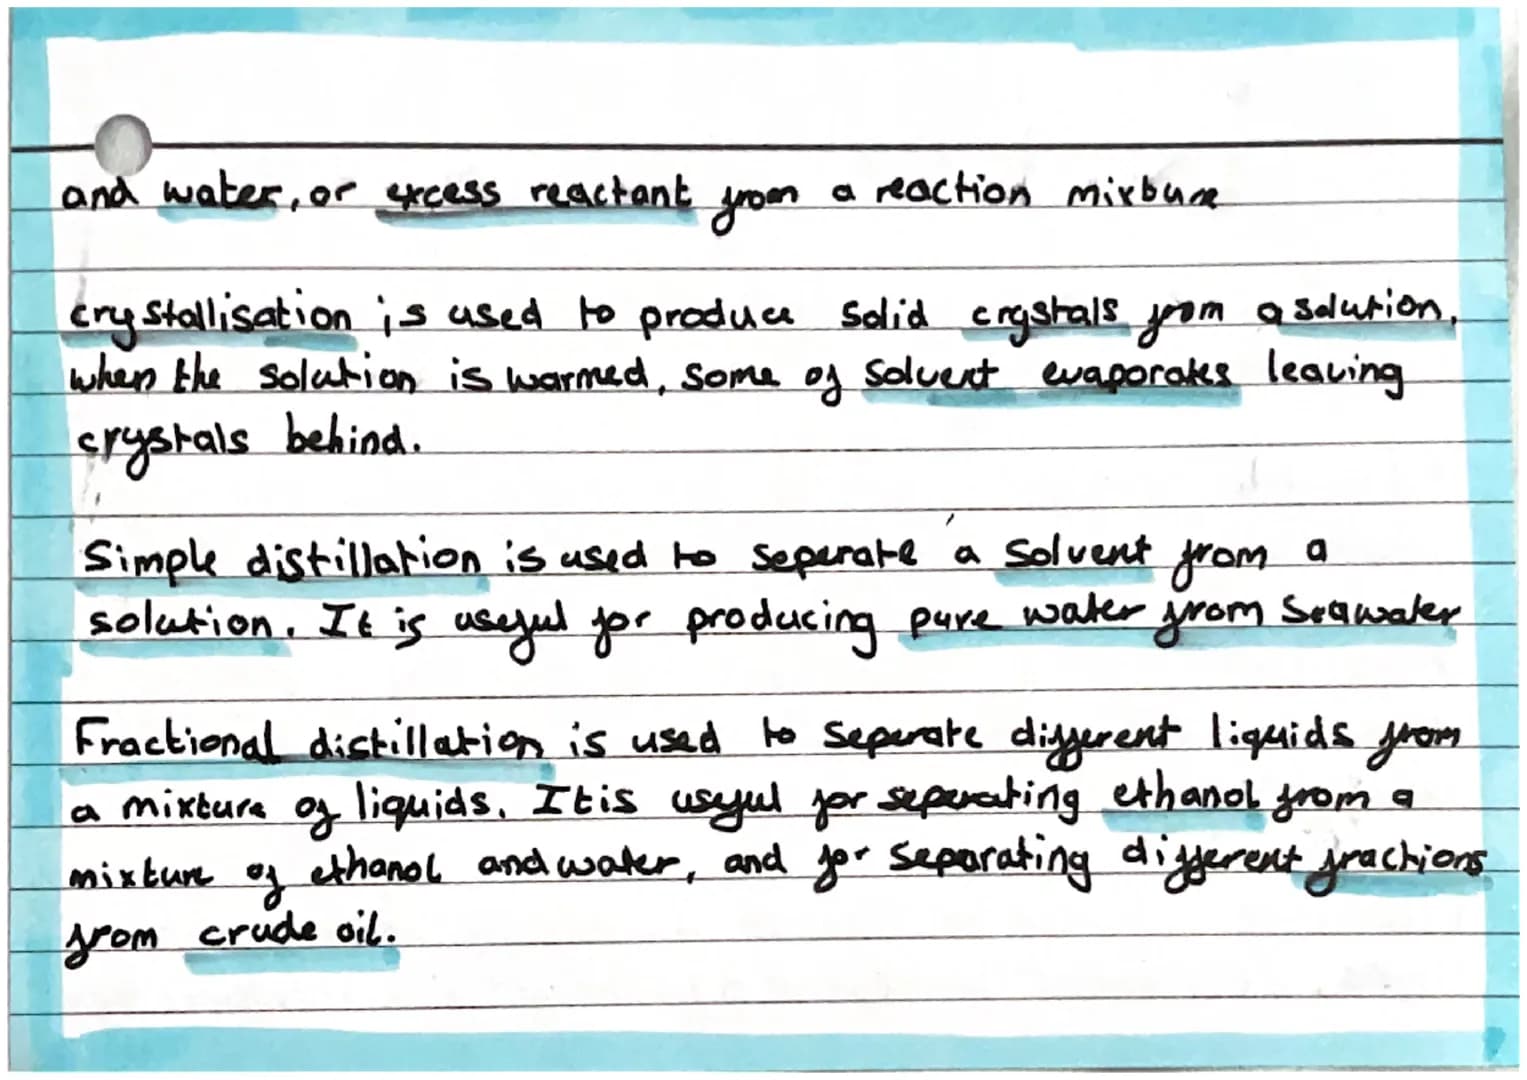 and water, or excess reactant from a reaction mixture
crystallisation is used to produce solid crystals from a solution,
when the solution is warmed, some of solvent evaporates leaving
crystals behind.
Simple distillation is used to seperate a solvent from a
solution. It is useful for producing pure water from seawater
Fractional distillation is used to seperate different liquids from
a mixture of liquids. It is useful for seperating ethanol from a
mixture of ethanol and water, and for separating different fractions
from crude oil.